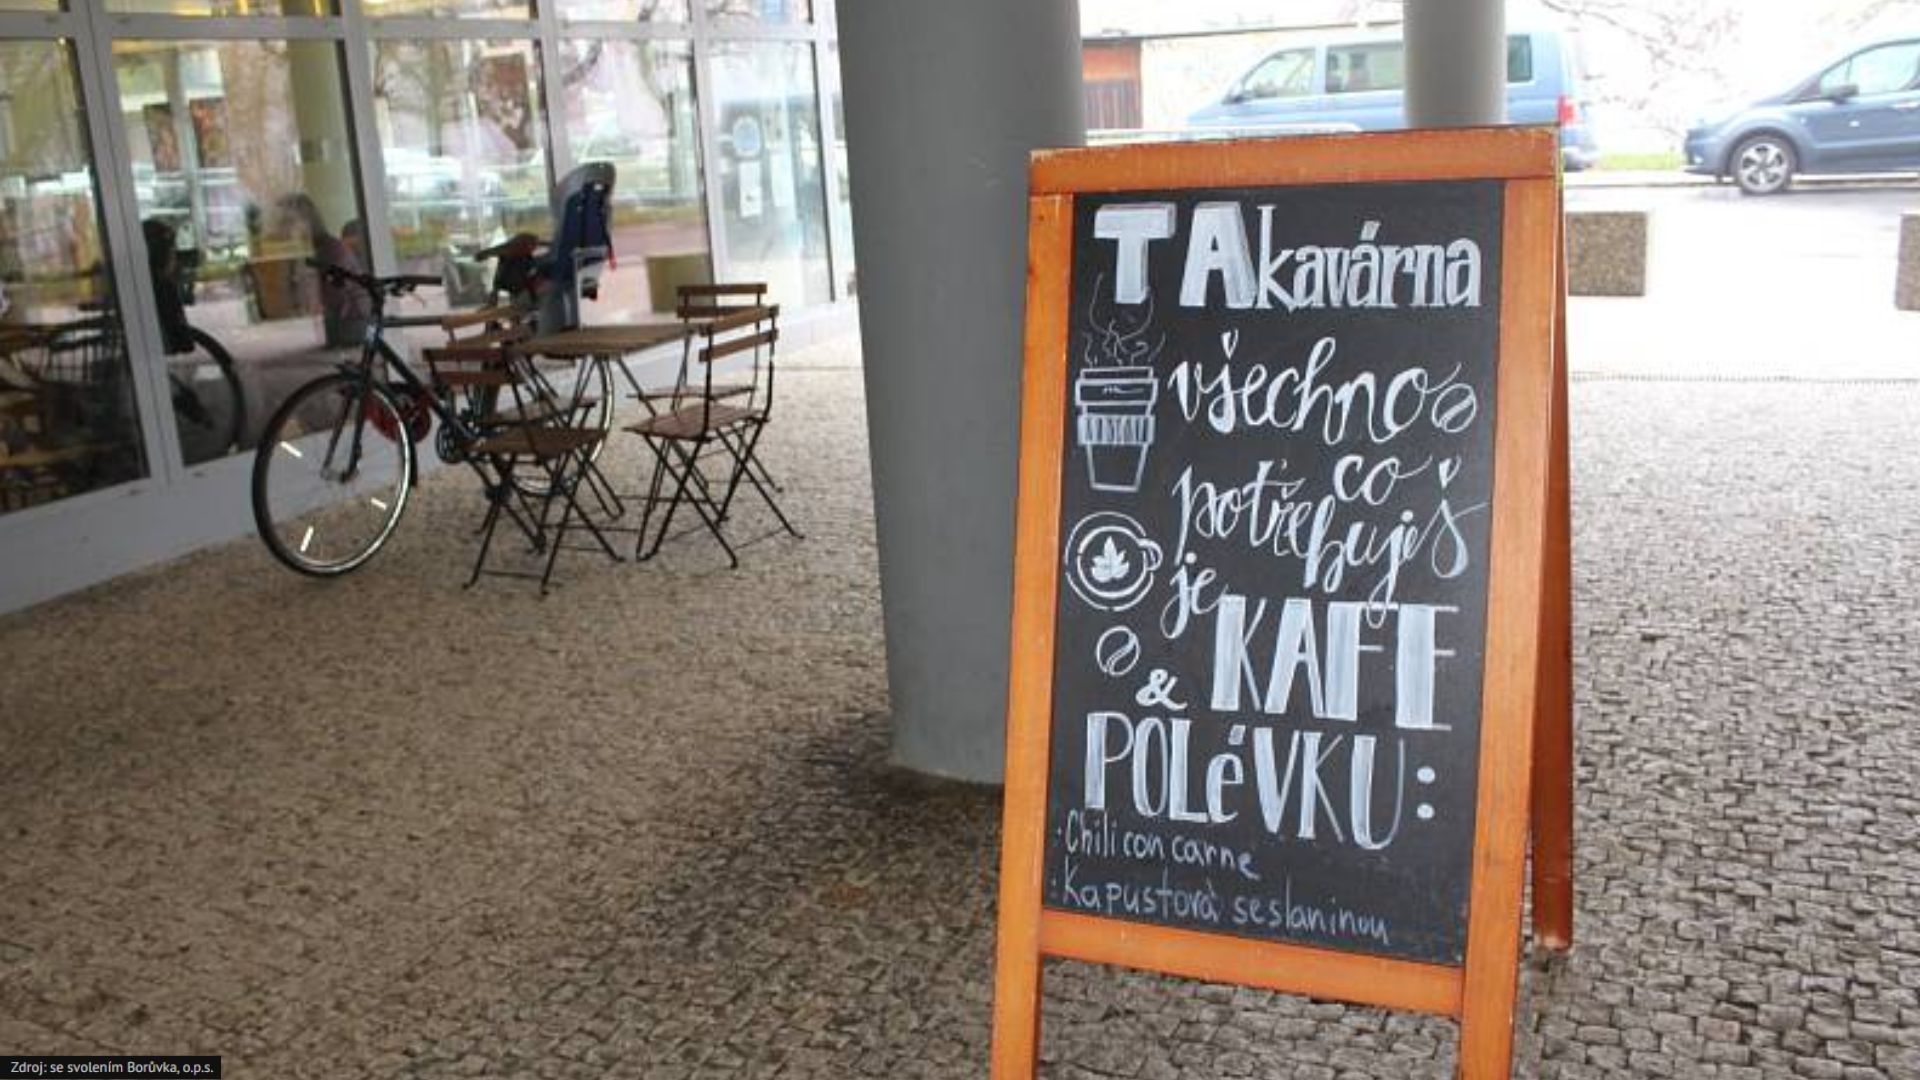 TAkavárna
všechno
co
potřebuješ
je KAFE
& POLéVKU:
· Chili con carne
· Kapustová se slaninou
Zdroj: se svolením Borůvka, o.p.s.